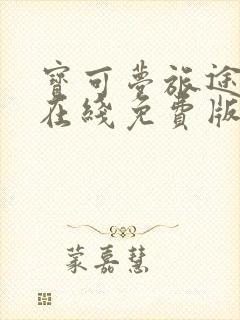 寶可夢旅途
在綫免費版
蒙嘉慧